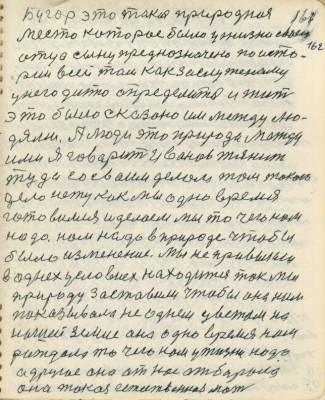 Бугор это такая природная 161
место которое было у жизни своей
отца сыну предназначено по исто- 162
рии всей там как заслуженому
у него это определится и жит
это было сказано им между лю-
дями. А люди это природа между
ими Я говорит Иванов тянит
туда со своим делом там такого
дело нету как мы одно время
готовимся и делаем мы то чего нам
надо. нам надо в природе чтобы
было изменение. Мы не привыкли
в однех условиех находится так мы
природу заставим чтобы она нам
показывала не однем цветом на
нашей земле она одно время нам
раждала то чего нам у жизни надо
а другое она от нас отбирала
она такая естественная мат